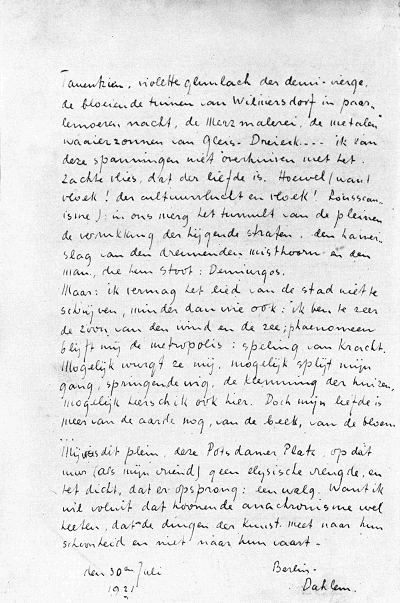 Tauentzien, violette glimlach der demi-vierge,
de bloeiende tuinen van Wilmersdorf in paar-
lemoeren nacht, de Merzmalerei, de metalen
waaierzonnen van Gleis-Dreieck.... ik kan
deze spanningen niet overhuiven met het
zachte vlies, dat der liefde is. Hoewel (want
vloek! der cultuurvlucht en vloek! Rousseau-
isme): in ons merg het tumult van de pleinen
de verrukking der hijgende straten, den hamer-
slag van den dreunenden misthoorn en den
man, die hem stoot: Demiurgos.
Maar: ik vermag het lied van de stad niet te
schrijven, minder dan wie ook: ik ben te zeer
de zoon van den wind en de zee; phaenomeen
blijft mij de metropolis: speling van kracht.
Mogelijk wurgt ze mij, mogelijk splijt mijn
gang, springende wig, de klemming der huizen,
mogelijk heersch ik ook hier. Doch mijn liefde is
meer van de aarde nog, van de beek, van de bloem
...
Mij was dit plein, deze Potsdamer Platz, op dat
uur (als mijn vriend) geen elysische vreugde, en
het dicht, dat er opsprong: een walg. Want ik
wil voluit dat hoonende anachronisme wel
heeten, dat de dingen der kunst meet naar hun
schoonheid en niet naar hun vaart.
den 30en Juli Berlin-
1921 Dahlem.